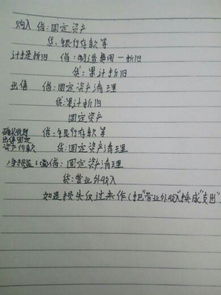 购入 借:固定资产
贷:银行存款等
计提折旧 借:制造费用—折旧
贷:累计折旧
出售 借:固定资产清理
贷:累计折旧
固定资产
借:银行存款等
贷:固定资产清理
借:固定资产清理
贷:营业外收入
如是损失反过来作(把"营业外收入"换成"支出"